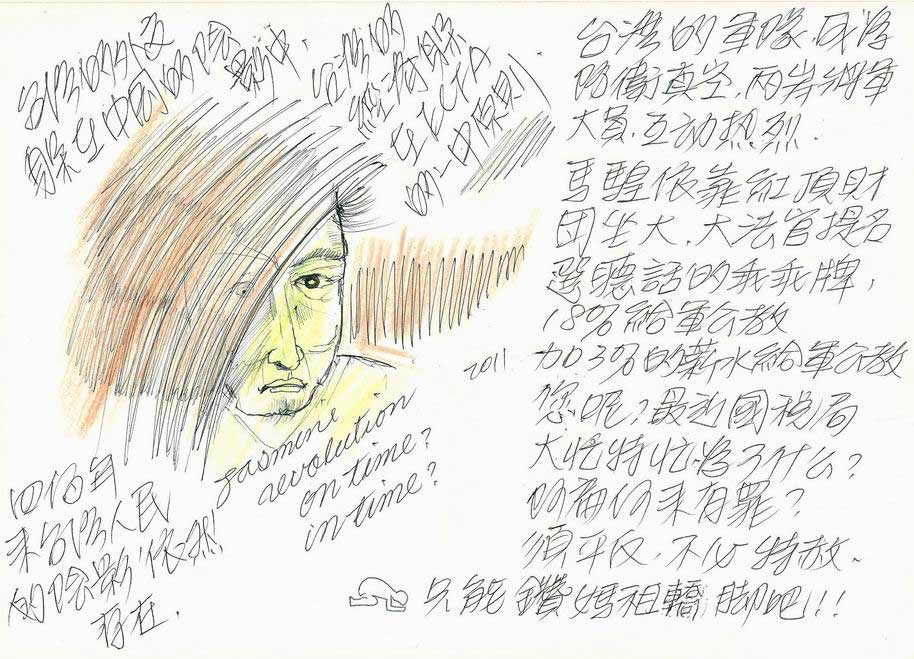 台灣的外交
躲在中國的陰影中.
台灣的
經濟躲
在ECFA
的一中原則.
台灣的軍隊.成為
防衛真空.兩岸將軍
大員.互动热烈.
馬騜依靠紅頂財
团坐大.大法官提名
選聽話的乖乖牌,
18%給軍公教
2011
加3%的薪水給軍公教
您呢?最近國税局
大忙特忙為了什么?
阿扁何來有罪?
須平反.不必特赦.
只能鑽媽祖轎脚吧!!!
jasmine
revolution
on time?
in time?
四佰年
來台灣人民
的陰影依然
存在.